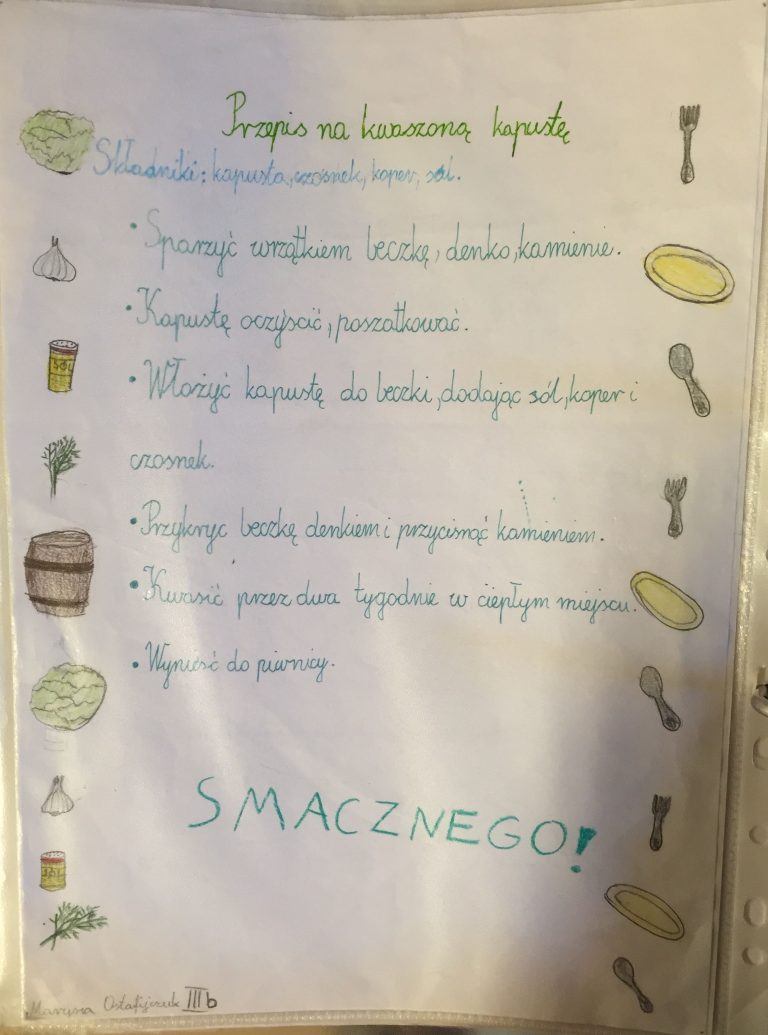 Przepis na kwaszoną kapustę
Składniki: kapusta, czosnek, koper, sól.
• Sparzyć wrzątkiem beczkę, denko, kamienie.
• Kapustę oczyścić, poszatkować.
• Włożyć kapustę do beczki, dodając sól, koper i
czosnek.
• Przykryc beczkę denkiem i przycisnąć kamieniem.
• Kwasić przez dwa tygodnie w ciepłym miejscu.
• Wynieść do piwnicy.
SMACZNEGO!
SÓL
SÓL
IIIb